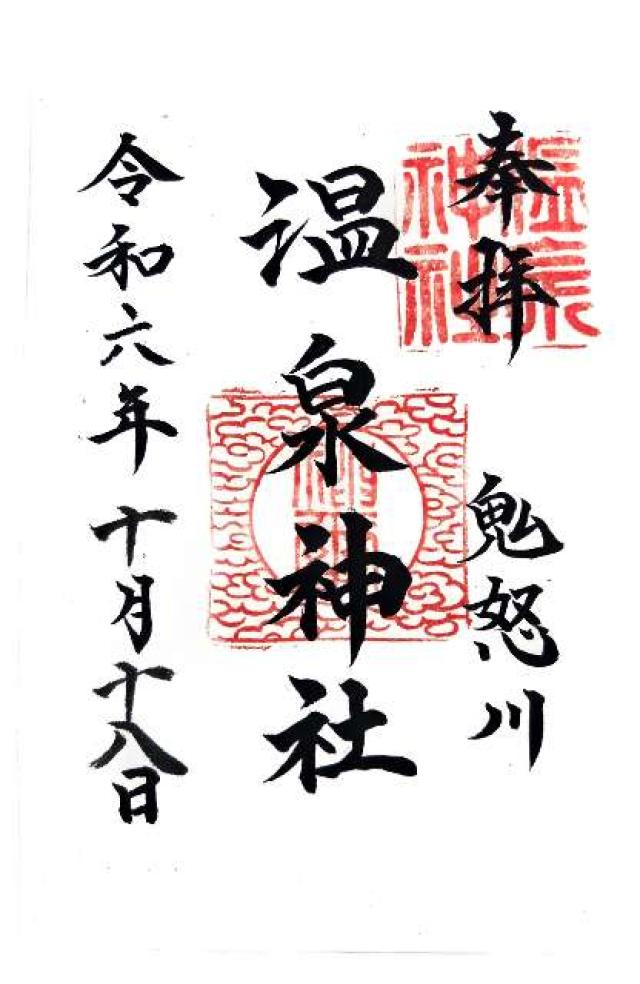 奉拝
鬼怒川
温泉神社
令和六年十月十八日